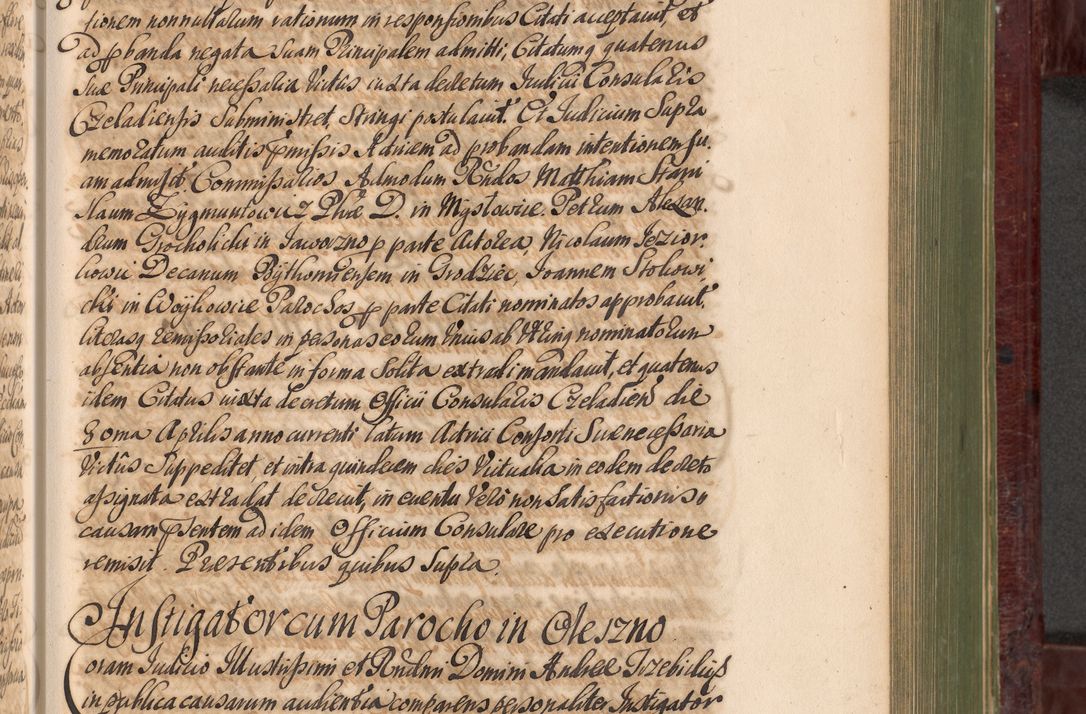 sionem nonnullarum rationum in responsionibus Citati acceptavit, et
ad pbanda negata suam Principalem admitti, Citatumq quatenus
suæ Principali necessaria Victus iuxta decretum Iudicii Consularis
Czeladiensis Subministret Stringi postulavit. Et Iudicium Supra
memoratum auditis pmissis Actricem ad probandam intentionem su,
am admisit, Commissarios Admodum Rndos Matthiam Stani
slaum Zygmuntowicz Phiæ D. in Mysłowice. Petrum Alexan,
drum Grocholicki in Jaworzno p parte Actorea, Nicolaum Jezior,
kowic Decanum Bythomiensem in Grodziec, Joannem Stokowi
cki in Woykowice Parochos p parte Citati nominatos approbavit.
literasq remissoriales in personas eorum Unius ab Utrinq nominatorum
absentia non obstante in forma Solita extradi mandavit, et quatenus
idem Citatus iuxta decretum Officii Consularis Czeladien die
8oma Aprilis anno currenti latum Actrici Consorti Suæ necessaria
Victus Suppeditet et intra quindecem dies Victualia in eodem decreto
assignata extradat decrevit, in eventu Vero non Satisfactionis
causam psentem ad idem Officium Consulare pro executione
remisit. Presentibus quibus Supra.
Instigator cum Parocho in Oleszno
Coram Iudicio Illustrissimi et Rndmi Domini Andreæ Trzebicki
in publica causarum audientia comparens personaliter Instigator